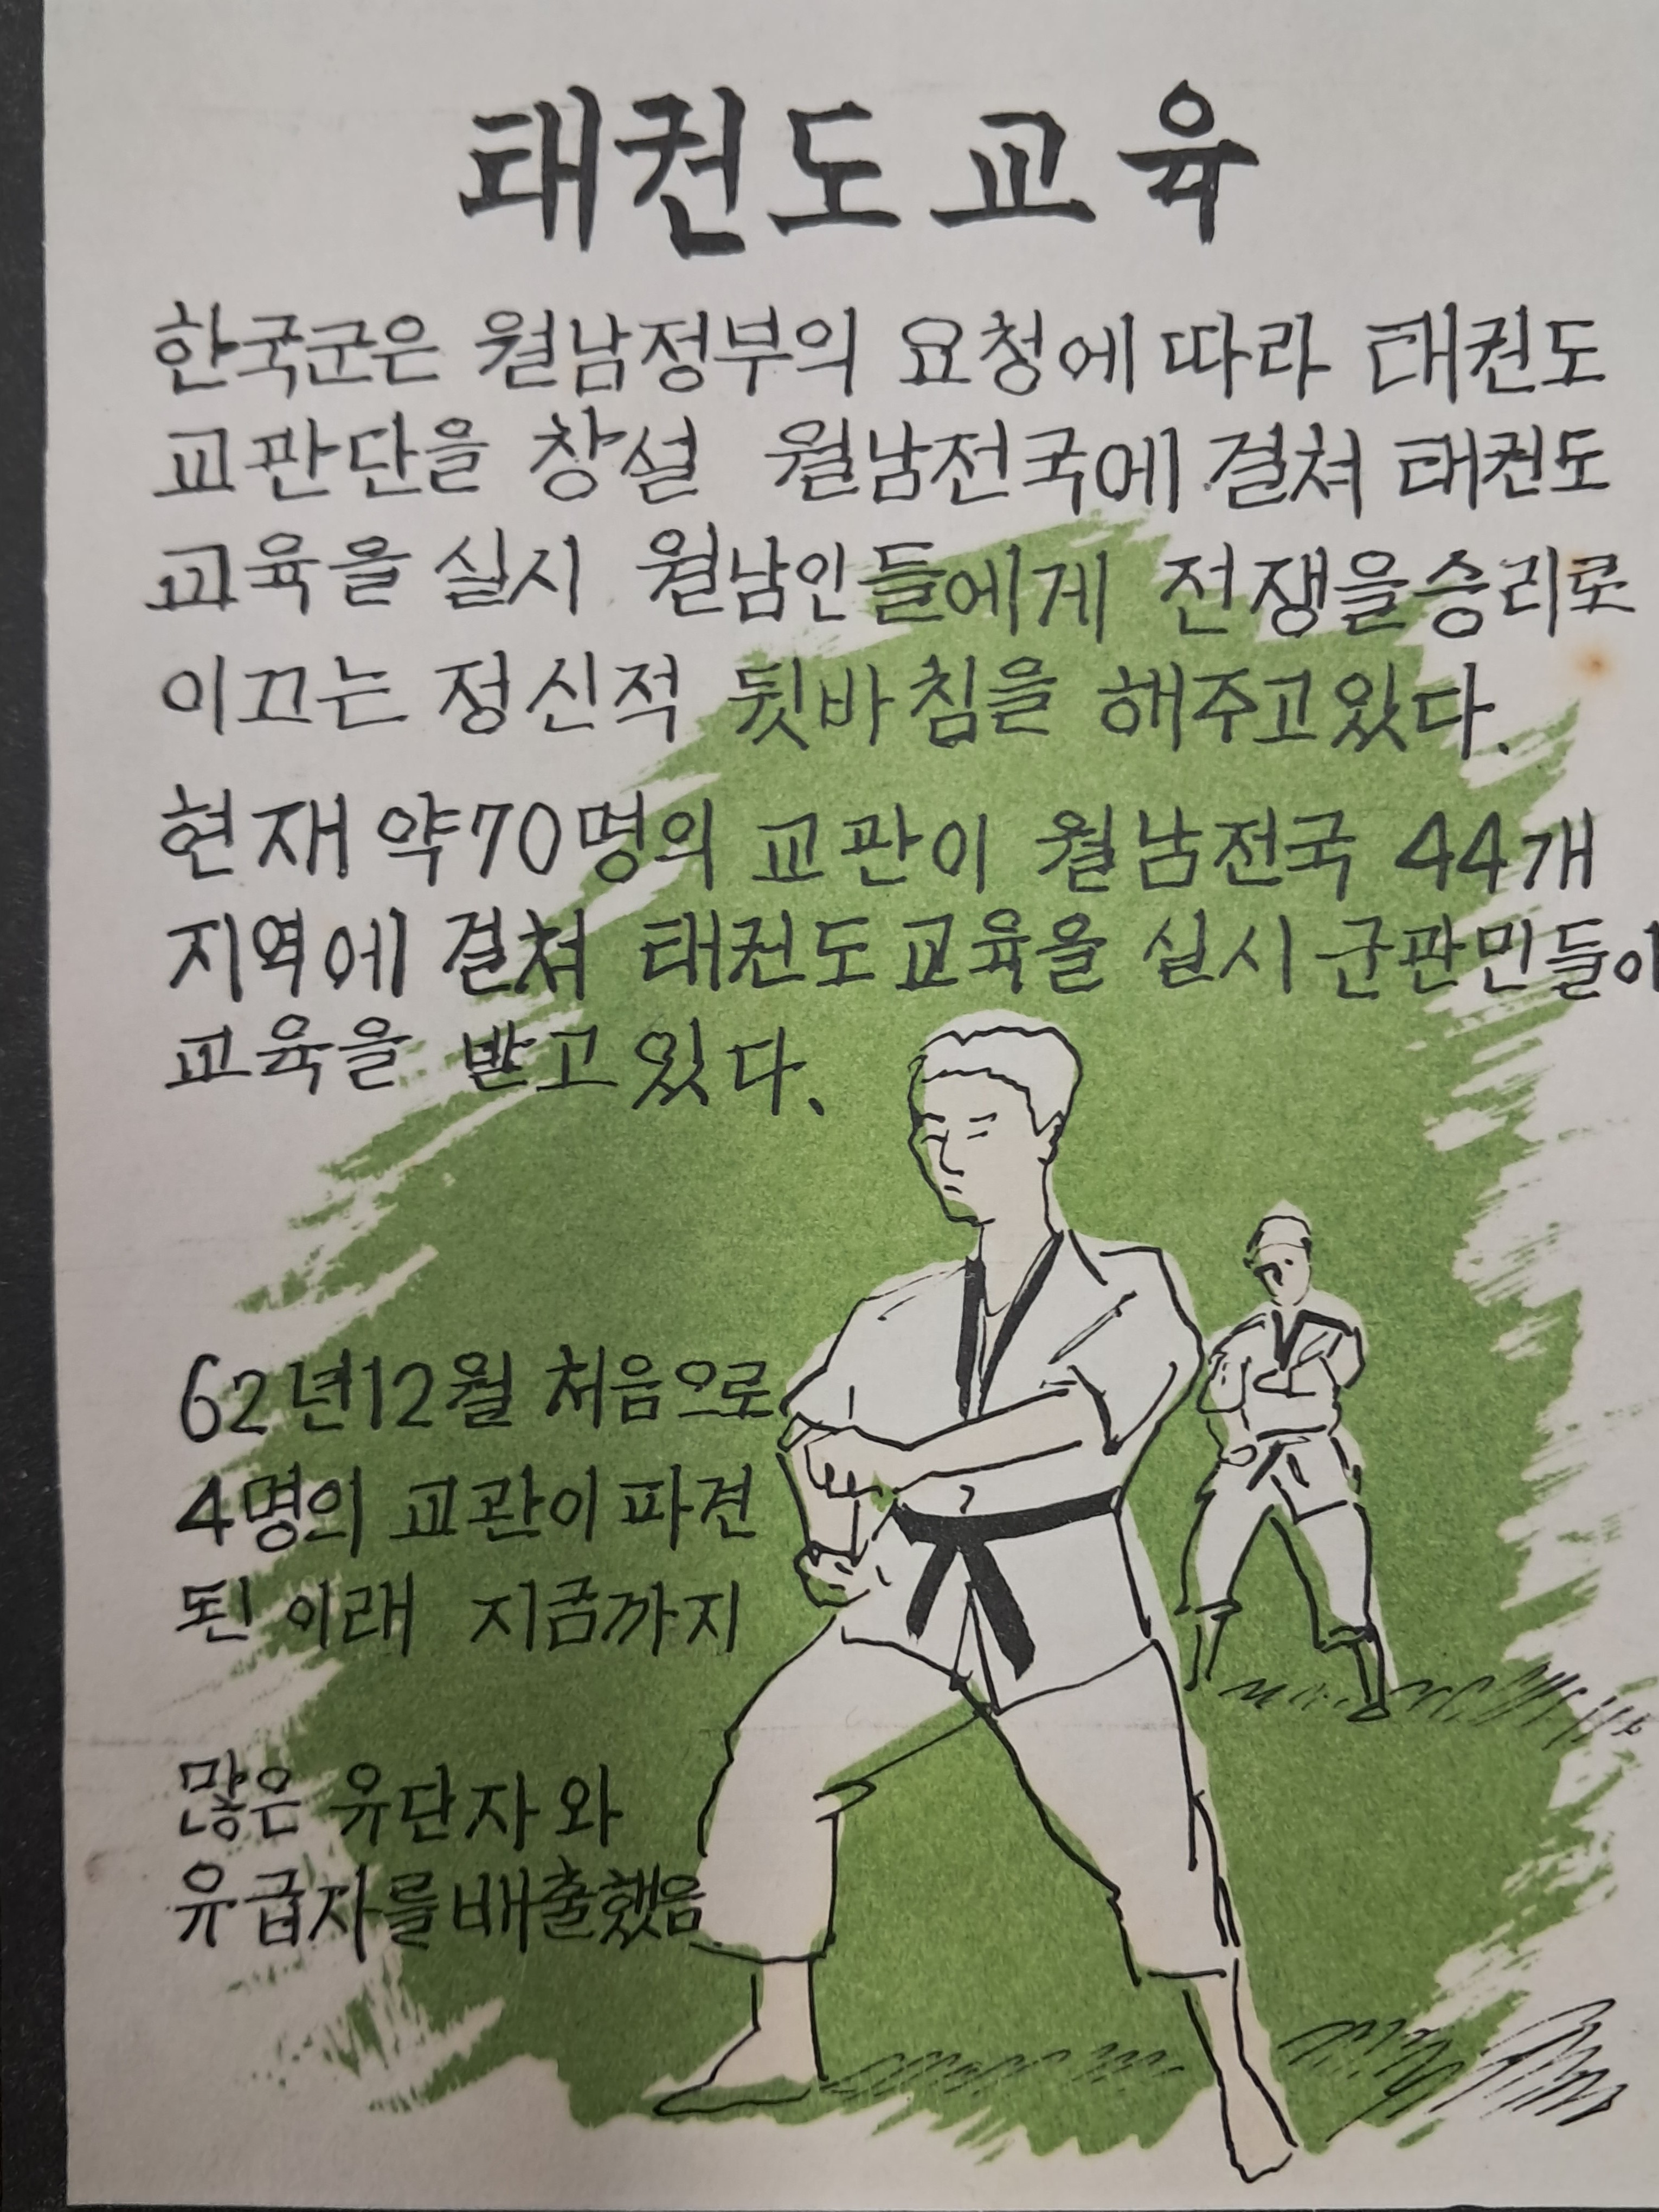 태권도교육
한국군은 월남정부의 요청에 따라 태권도
교관단을 창설 월남전국에 걸쳐 태권도
교육을 실시 월남인들에게 전쟁을승리로
이끄는 정신적 뒷바침을 해주고있다.
현재 약70명의 교관이 월남전국 44개
지역에 걸쳐 태권도교육을 실시 군관민들이
교육을 받고있다.
62년12월 처음으로
4명의 교관이 파견
된 이래 지금까지
많은 유단자와
유급자를배출했음